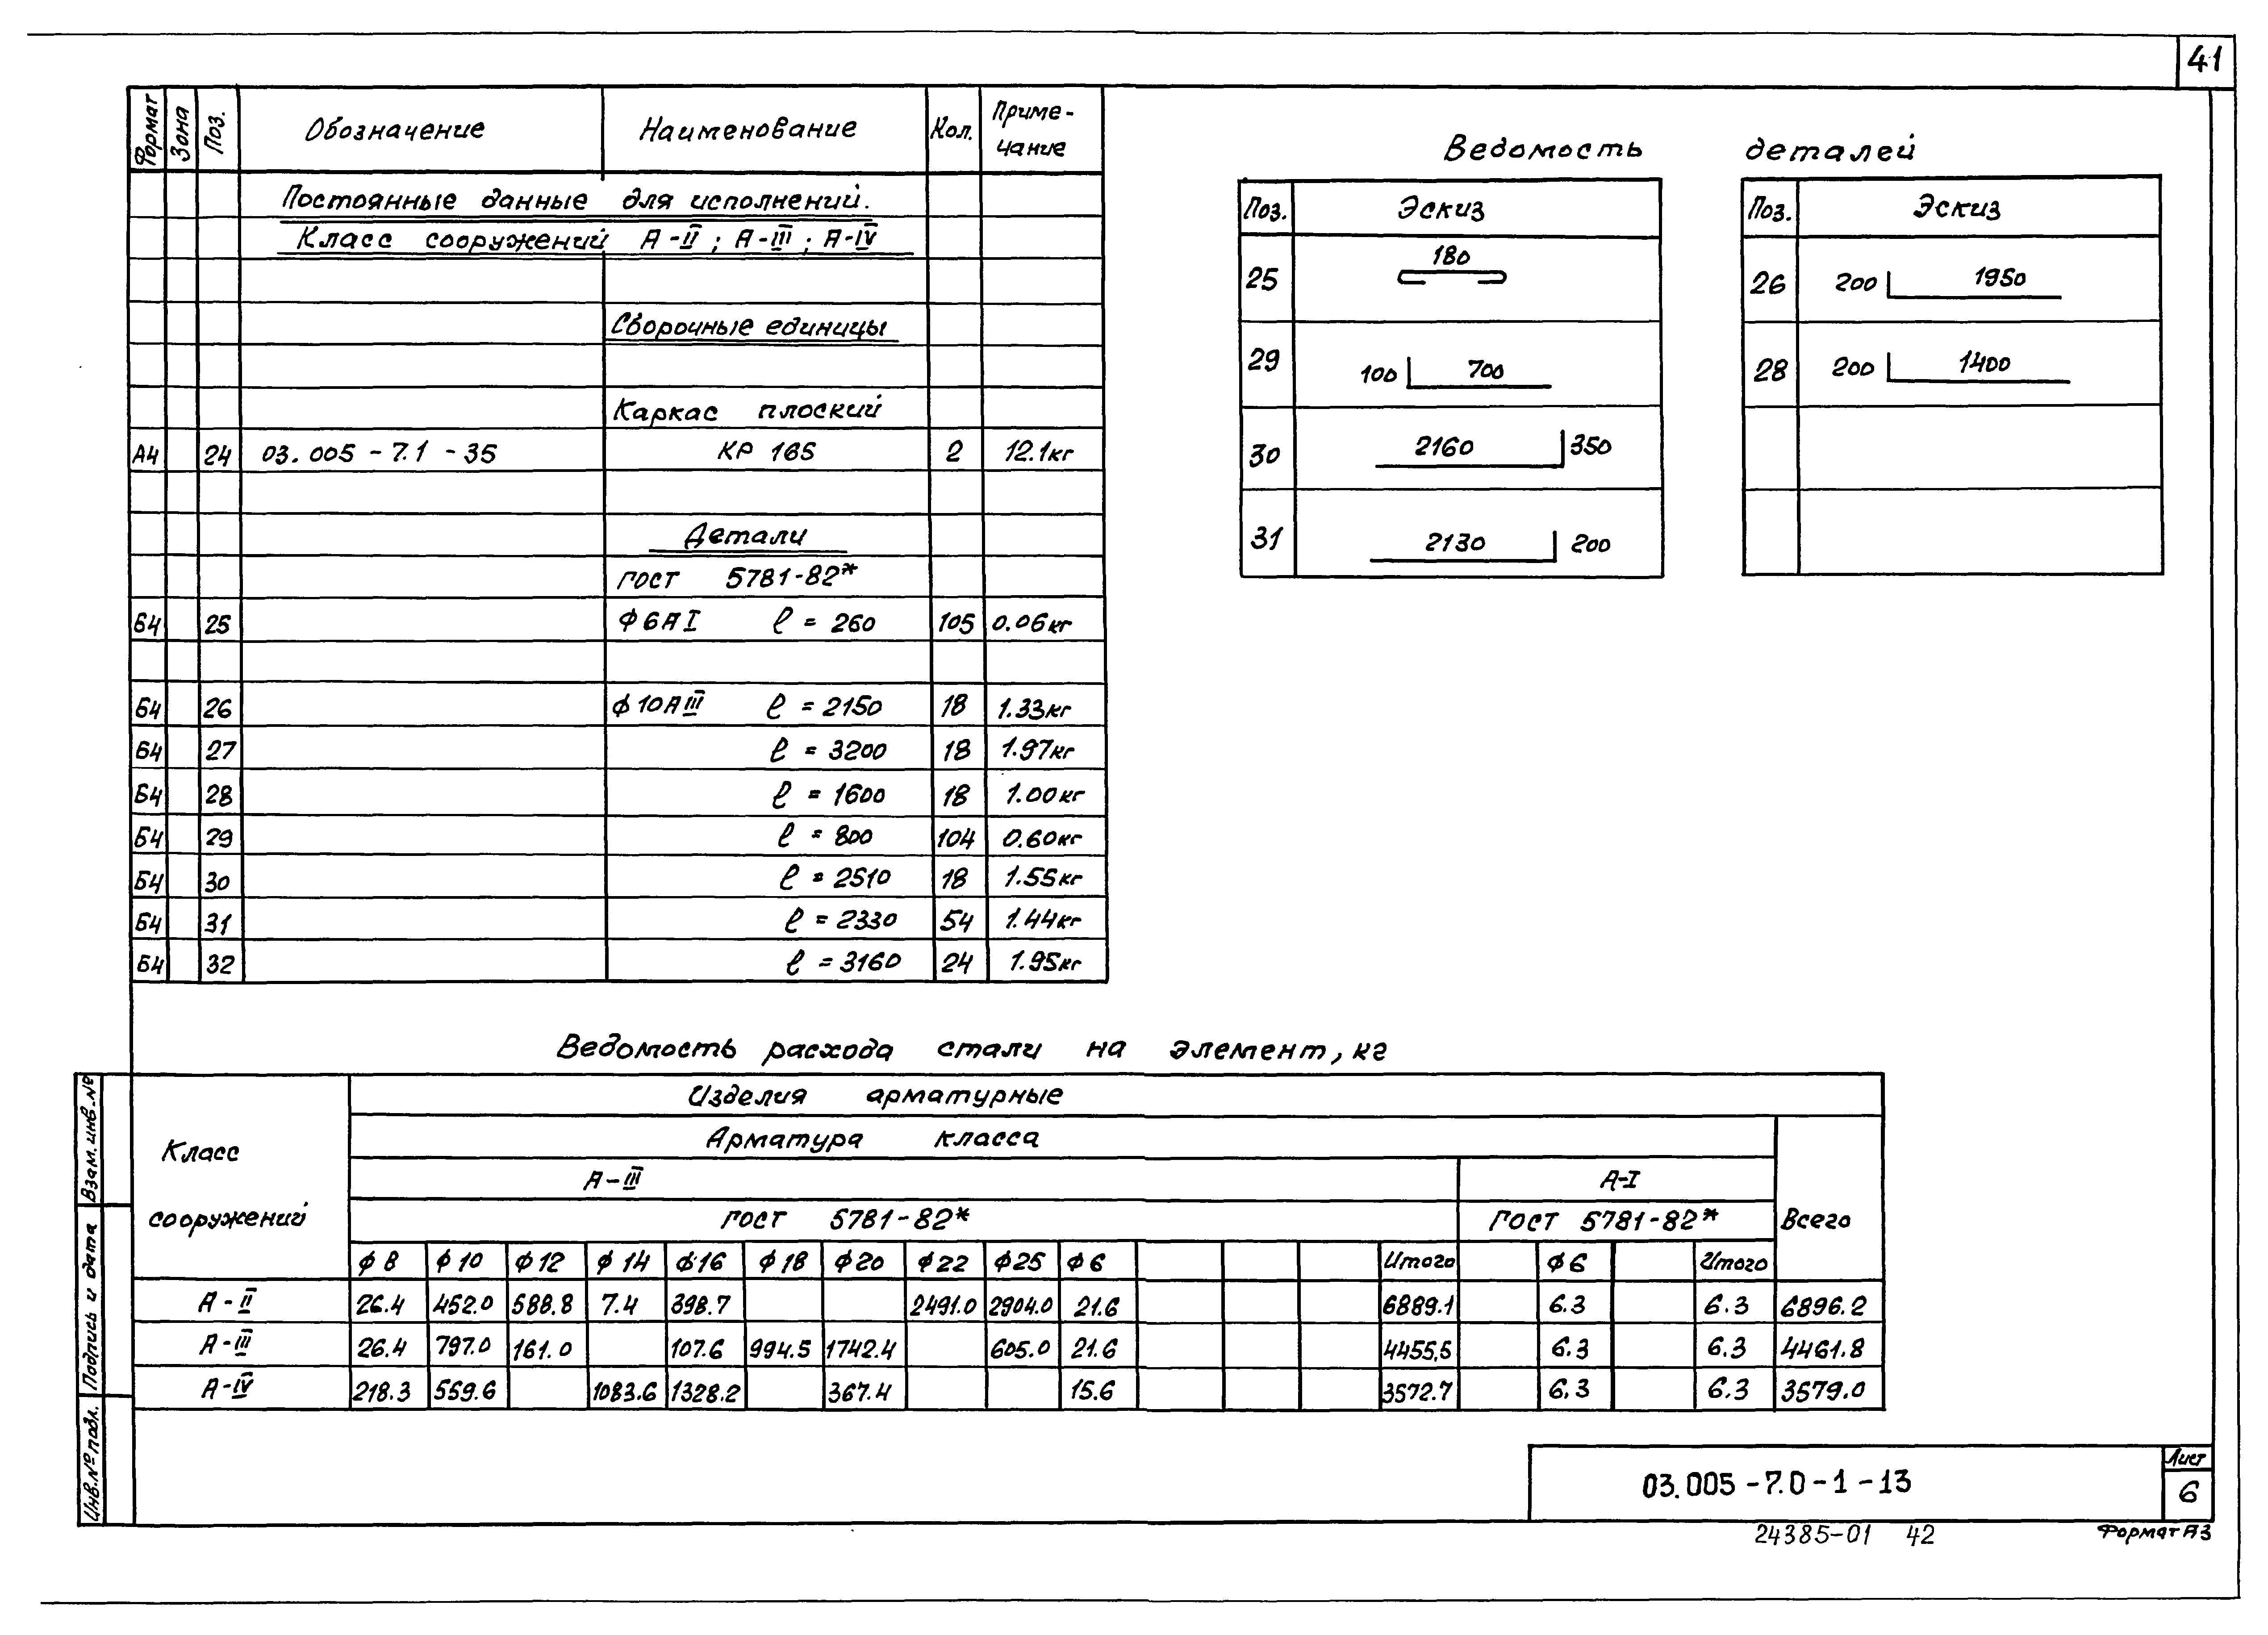 41
Формат Зона Поз. Обозначение Наименование Кол. Приме-
чание
Постоянные данные для исполнений.
Класс сооружений А-II; А-III; А-IV
Сборочные единицы
Каркас плоский
А4 24 03.005-7.1-35 КР 165 2 12.1кг
Детали
ГОСТ 5781-82*
Б4 25 Ф6АI ℓ = 260 105 0.06кг
Б4 26 Ф10АIII ℓ = 2150 18 1.33кг
Б4 27 ℓ = 3200 18 1.97кг
Б4 28 ℓ = 1600 18 1.00кг
Б4 29 ℓ = 800 104 0.60кг
Б4 30 ℓ = 2510 18 1.55кг
Б4 31 ℓ = 2330 54 1.44кг
Б4 32 ℓ = 3160 24 1.95кг
Ведомость деталей
Поз. Эскиз
25 180
29 100 700
30 2160 350
31 2130 200
Поз. Эскиз
26 200 1950
28 200 1400
Ведомость расхода стали на элемент, кг
Класс
сооружений
Изделия арматурные
Арматура класса
А-III А-I
ГОСТ 5781-82* ГОСТ 5781-82* Всего
ф8 ф10 ф12 ф14 ф16 ф18 ф20 ф22 ф25 ф6 Итого ф6 Итого
А-II 26.4 452.0 588.8 7.4 398.7 2491.0 2904.0 21.6 6889.1 6.3 6.3 6896.2
А-III 26.4 797.0 161.0 107.6 994.5 1742.4 605.0 21.6 4455,5 6.3 6.3 4461.8
А-IV 218.3 559.6 1083.6 1328.2 367.4 15.6 3572.7 6.3 6.3 3579.0
Взам. инв. №
Подпись и дата
Инв. № подл.
03.005-7.0-1-13
Лист
6
24385-01 42
Формат А3